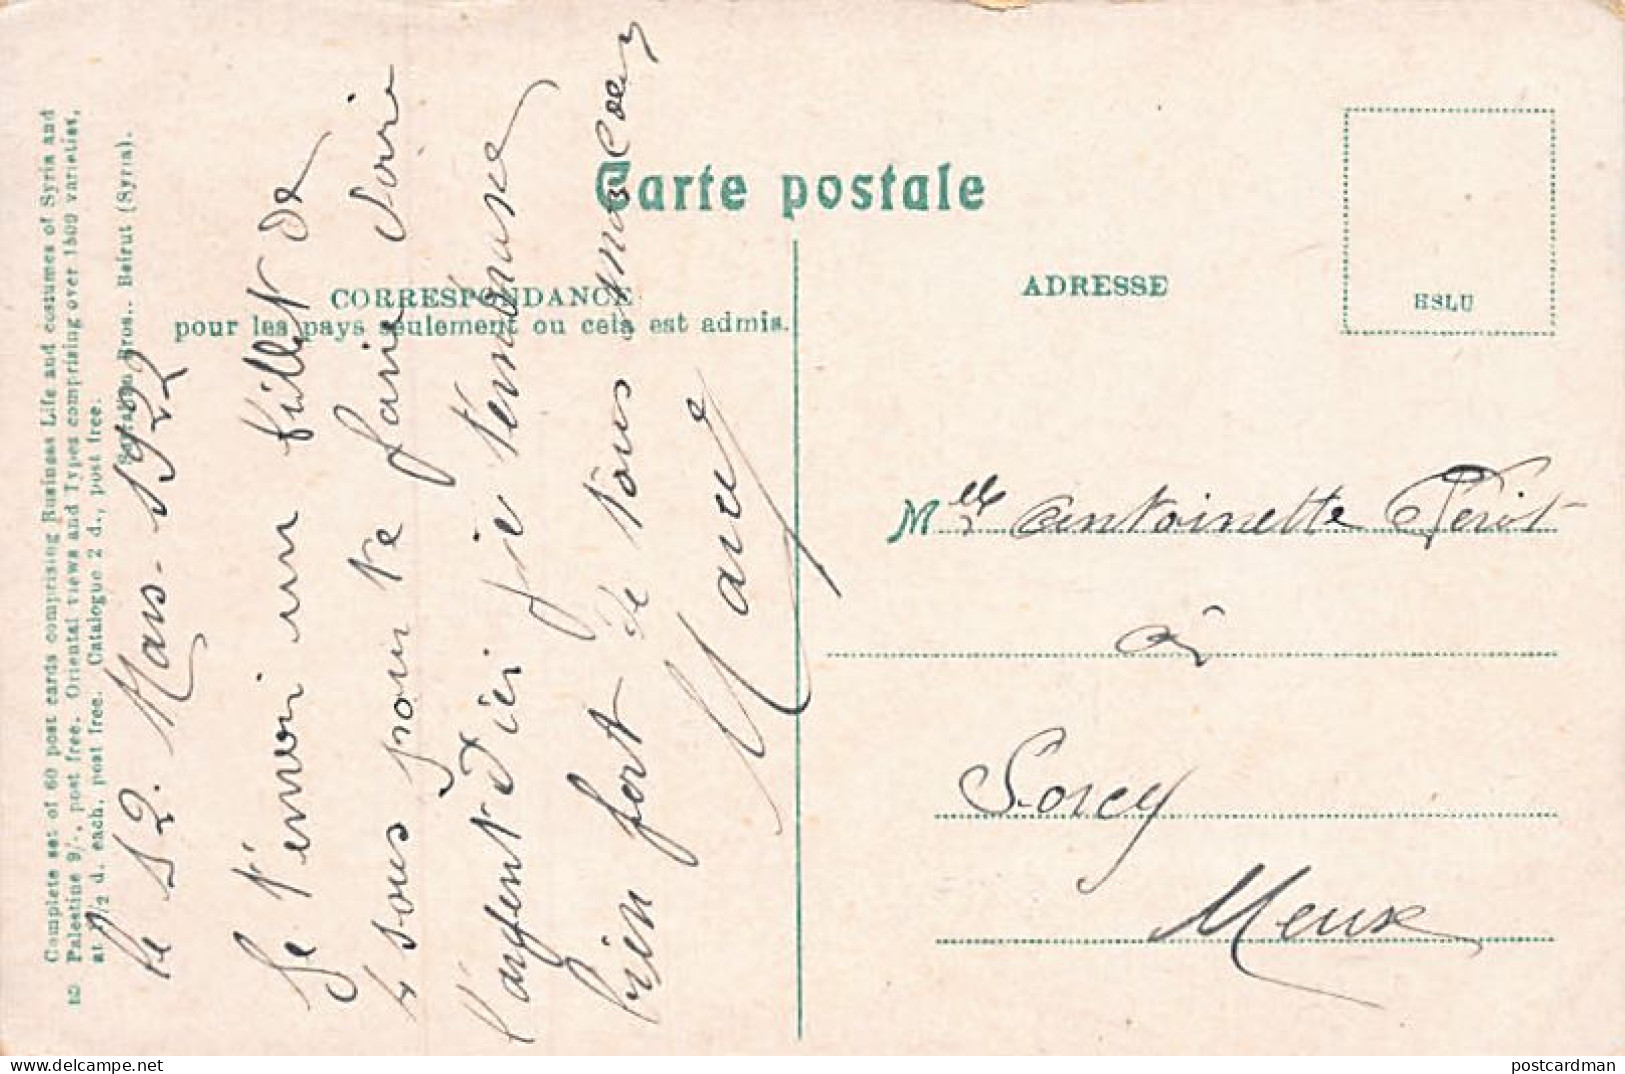 Complete set of 60 post cards comprising Business Life and costumes of Syria and
Palestine 9/-, post free. Oriental views and Types comprising over 1500 varieties,
at 1 1/2 d. each, post free. Catalogue 2 d., post free.
Bros., Beirut (Syria).
le 12. Mars. 1922
Je t'envoi un billet de
4 sous pour te faire voir
l'argent d'ici je t'embrasse
bien fort de tous mon coeur
Carte postale
CORRESPONDANCE
pour les pays seulement ou cela est admis.
ADRESSE
HSLU
Melle Antoinette Périot
à
Sorcy
Meuse
delcampe.net
postcardman